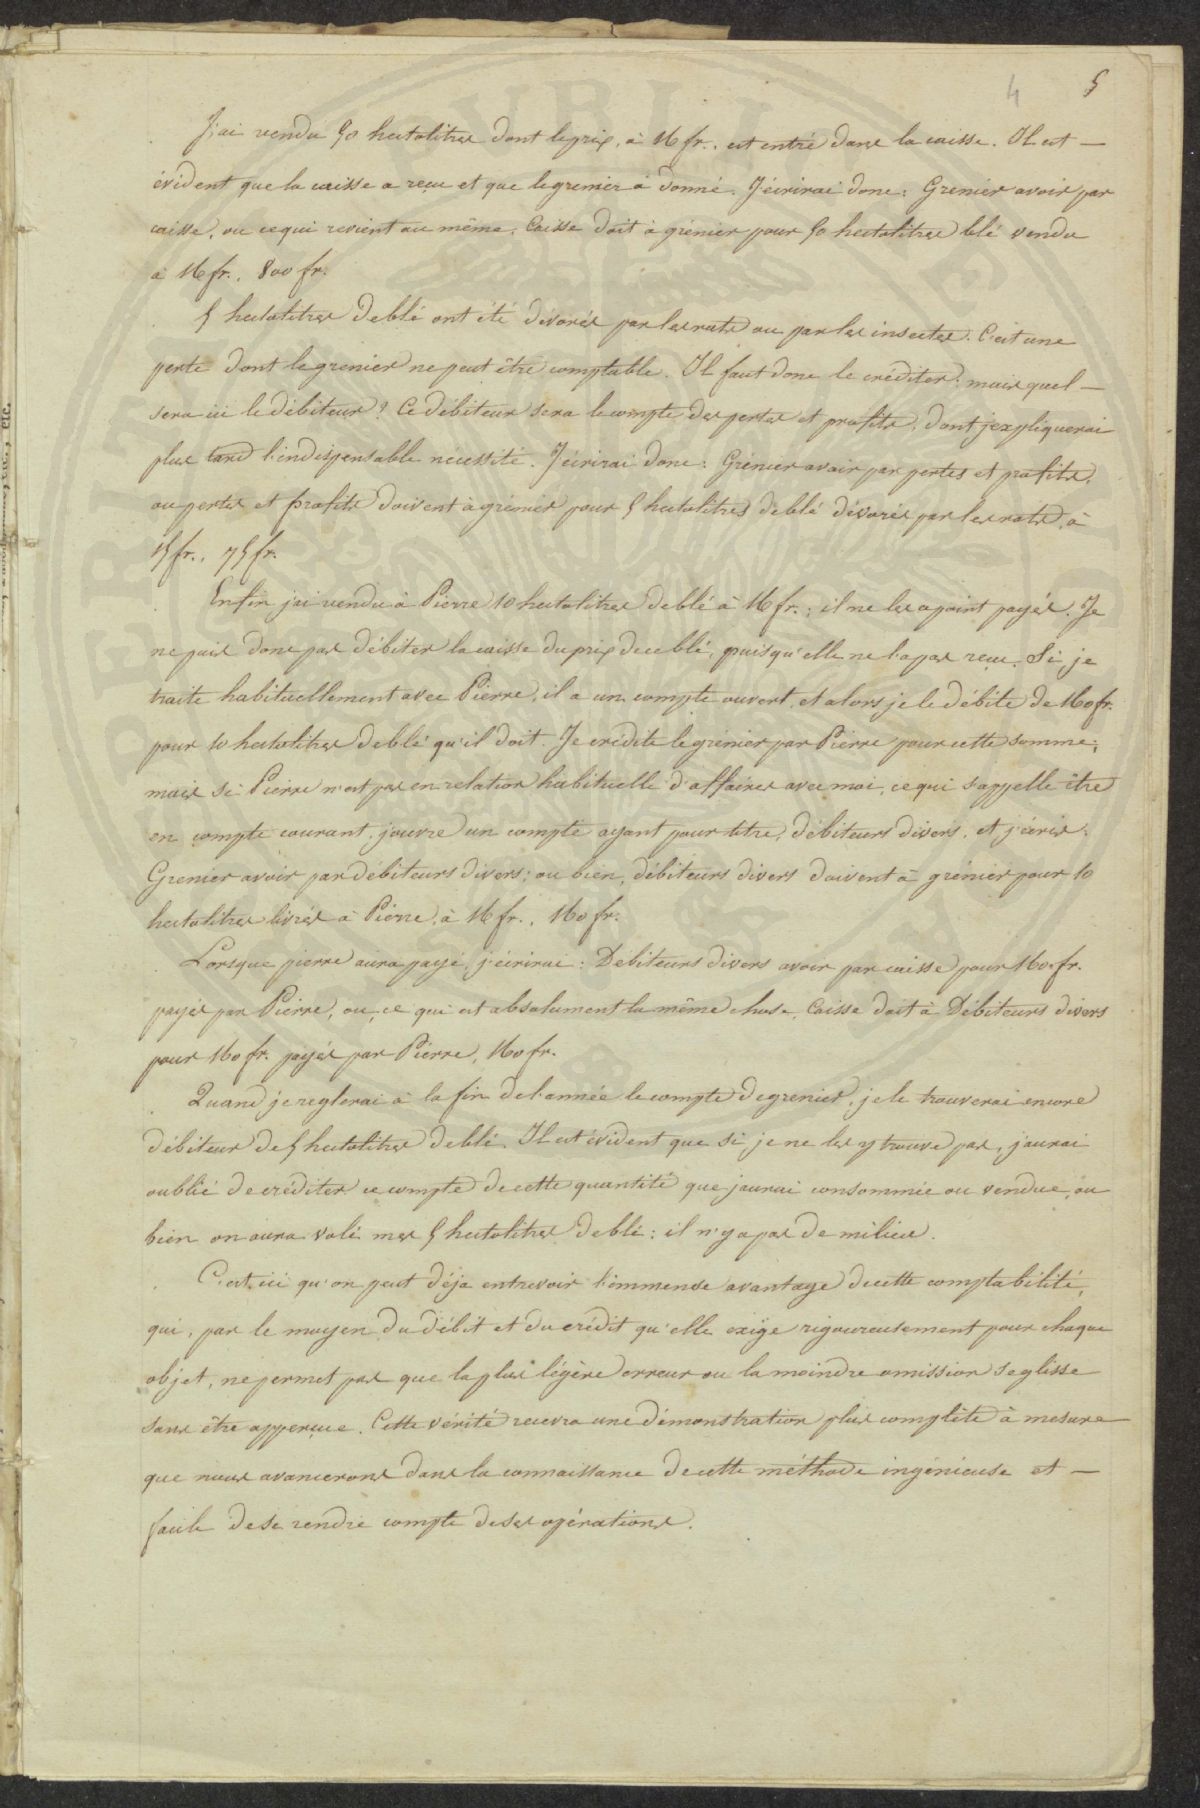 4 5
J'ai vendu 50 hectolitres dont le prix, à 16 fr., est entré dans la caisse. Il est —
évident que la caisse a reçu et que le grenier a donné. J'écrirai donc : Grenier avoir par
caisse, ou ce qui revient au même, Caisse doit à grénier pour 50 hectolitres blé vendu
à 16 fr., 800 fr.
5 hectolitres de blé ont été dévorés par les rats ou par les insectes. C'est une
perte dont le grenier ne peut être comptable. Il faut donc le créditer ; mais quel —
sera ici le débiteur ? Ce débiteur sera le compte des pertes et profits, dont j'expliquerai
plus tard l'indispensable nécessité. J'écrirai donc : Grénier avoir par pertes et profits,
ou pertes et profits doivent à grénier pour 5 hectolitres de blé dévorés par les rats, à
15 fr., 75 fr.
Enfin j'ai vendu à Pierre 10 hectolitres de blé à 16 fr. ; il ne les a point payés. Je
ne puis donc pas débiter la caisse du prix de ce blé, puisqu'elle ne l'a pas reçu. Si je
traite habituellement avec Pierre, il a un compte ouvert, et alors je le débite de 160 fr.
pour 10 hectolitres de blé qu'il doit. Je crédite le grénier par Pierre pour cette somme ;
mais si Pierre n'est pas en relation habituelle d'affaires avec moi, ce qui s'appelle être
en compte courant, j'ouvre un compte ayant pour titre, débiteurs divers, et j'écris :
Grenier avoir par débiteurs divers ; ou bien, débiteurs divers doivent à grénier pour 10
hectolitres livrés à Pierre, à 16 fr., 160 fr.
Lorsque pierre aura payé, j'écrirai : Débiteurs divers avoir par caisse pour 160 fr.
payés par Pierre, ou, ce qui est absolument la même chose, Caisse doit à Débiteurs divers
pour 160 fr. payés par Pierre, 160 fr.
Quand je reglerai à la fin de l'année le compte de grenier, je le trouverai encore
débiteur de 5 hectolitres de blé. Il est évident que si je ne les y trouve pas, j'aurai
oublié de créditer ce compte de cette quantité que j'aurai consommée ou vendue, ou
bien on aura volé mes 5 hectolitres de blé : il n'y a pas de milieu.
C'est ici qu'on peut déja entrevoir l'immense avantage de cette comptabilité,
qui, par le moyen du débit et du crédit qu'elle exige rigoureusement pour chaque
objet, ne permet pas que la plus légère erreur ou la moindre omission se glisse
sans être apperçue. Cette vérité recevra une démonstration plus complète à mesure
que nous avancerons dans la connaissance de cette méthode ingénieuse et —
facile de se rendre compte de ses opérations.
etc.